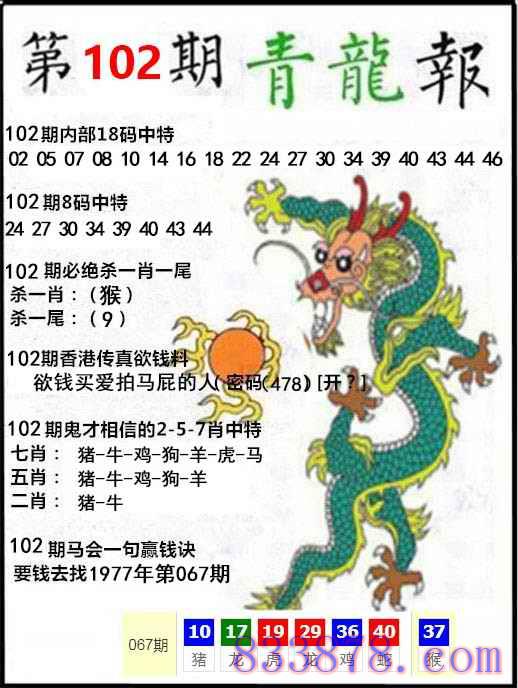 第102期青龍報
102期内部18码中特
02 05 07 08 10 14 16 18 22 24 27 30 34 39 40 43 44 46
102期8码中特
24 27 30 34 39 40 43 44
102期必绝杀一肖一尾
杀一肖：（猴）
杀一尾：（9）
102期香港传真欲钱料
欲钱买爱拍马屁的人(密码(478)[开？]
102期鬼才相信的2-5-7肖中特
七肖： 猪-牛-鸡-狗-羊-虎-马
五肖： 猪-牛-鸡-狗-羊
二肖： 猪-牛
102期马会一句赢钱诀
要钱去找1977年第067期
067期 10 17 19 29 36 40 37
猪 龙 虎 龙 鸡 蛇 猴
833878.com